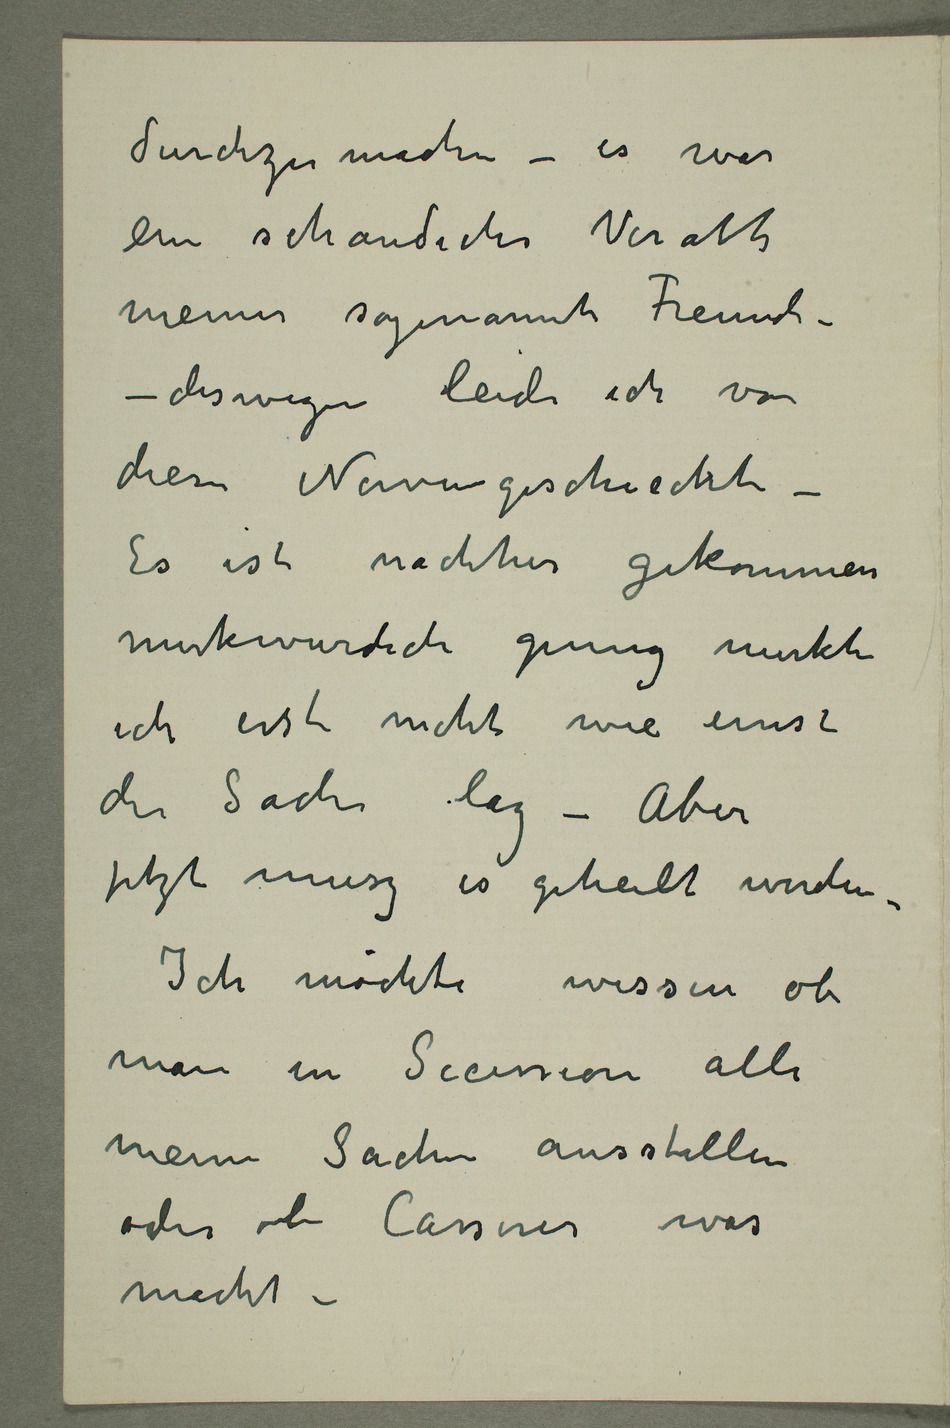 durchzumachen – es war
ein schandiches Verath
meiner sogenannte Freunde –
– deswegen leide ich von
diese Nervengeschischte –
Es ist nachher gekommen
merkwürdich genug merkte
ich erst nicht wie ernst
die Sache lag – Aber
jetzt muesz es geheilt werden –
Ich möchte wissen ob
man in Secession alle
meine Sachen ausstellen
oder ob Cassirer was
macht –